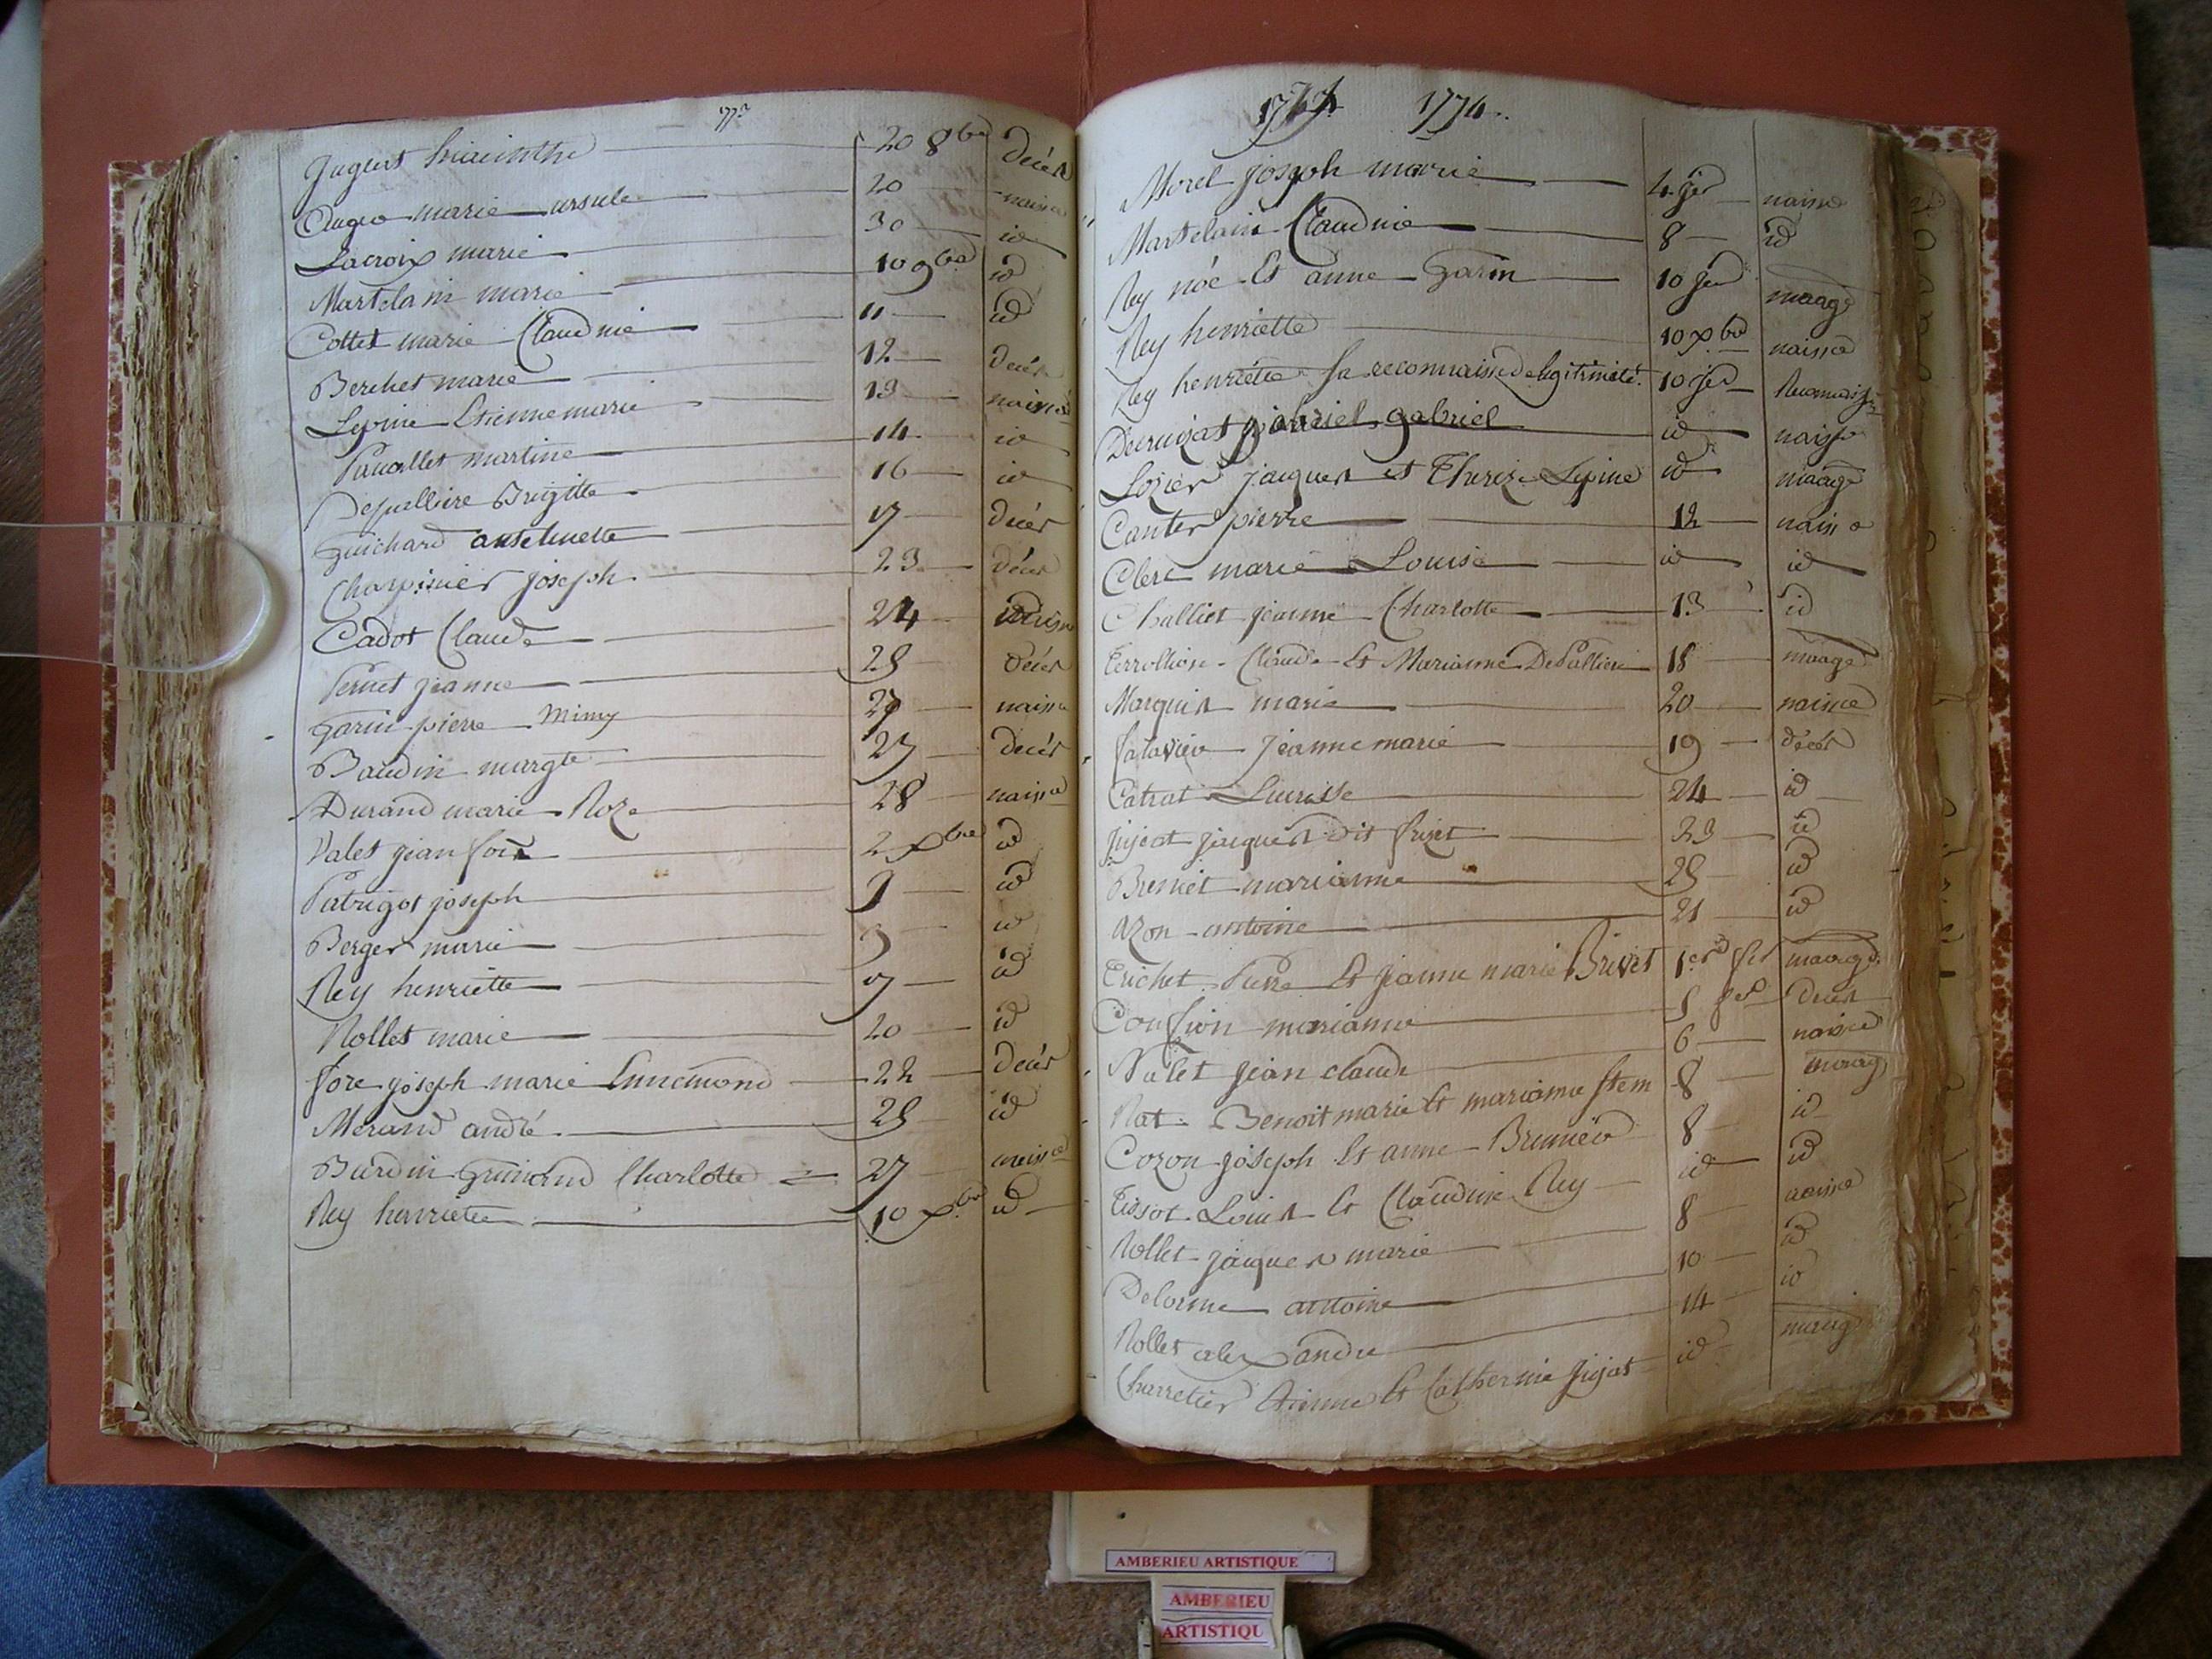 1773
Juglert hiacinthe 20 8bre décès
marie ursule 20 naissce
Lacroix marie 30 id
Martelain marie 10 9bre id
Cottet marie Claudine 11 id
Berchet marie 12 décès
Lepine Etienne marie 13 naissce
martine 14 id
Depallière Brigitte 16 id
Guichard anthelmette 17 décès
Charpinier joseph 23 décès
Cadot Claude 24
Pernet jeanne 25 décès
Garin pierre Mimy 27 naissce
Baudin margte 27 décès
Durand marie Roze 28 naissce
Valet jean fois 2 xbre id
joseph id
Berger marie id
Rey henriette 7 id
Rollet marie 20 id
fore joseph marie Ennemond 22 décès
Merand andré 25 id
Bardin Charlotte 27 naissce
Rey henriette 10 xbre id
1774
Morel joseph marie 4 jer naissce
Martelain Claudine 8 id
Rey noé Et anne Garin 10 jer maage
Rey henriette 10 xbre naissce
Rey henriette sa reconnaissce de legitimité 10 jer Reconnaissce
gabriel id naissce
Lozier jacques et Therèze Lepine id maage
Canter pierre 12 naissce
Clerc marie Louise id id
Challiet jeanne Charlotte 13 id
Terrollion Claude Et Marianne DePallière 18 maage
Marquis marie 20 naissce
jeanne marie 19 décès
Catrat 24 id
Jujeat jacques dit frizet 23 id
Brunet marianne 25 id
Azon antoine 21 id
Trichet Pierre Et jeanne marie Brivet 1er fer maage
marianne 5 fer décès
Valet jean claude 6 naissce
Rat Benoit marie Et marianne 8 maag
Cozon joseph Et anne Brunier 8 id
Tissot Louis Et Claudine Rey id id
Rollet jacques marie 8 naissce
Delorme antoine 10 id
Rollet alexandre 14 id
Charretier Etienne Et Catherine Jujat id maag
AMBERIEU ARTISTIQUE
AMBERIEU
ARTISTIQU